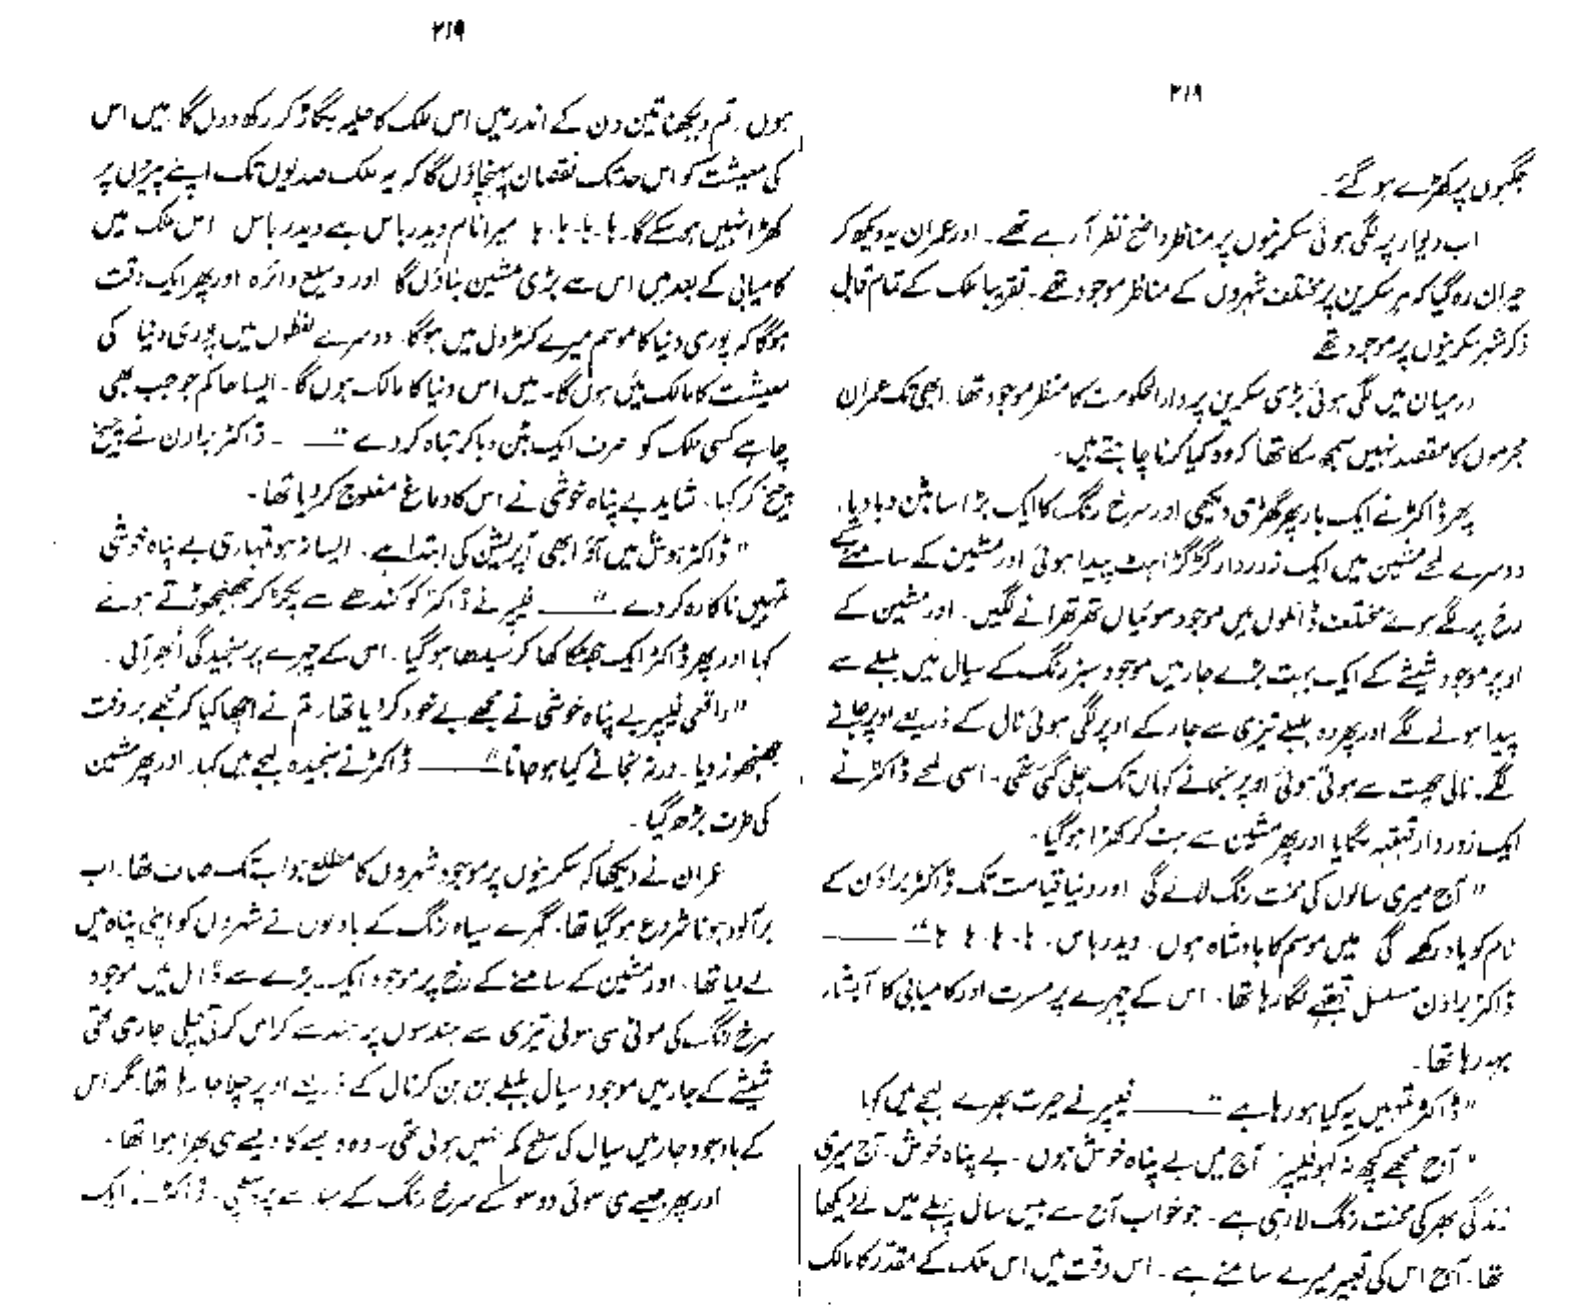 ۲۱۸
جگہوں پر کھڑے ہو گئے۔
اب دیوار پر لگی ہوئی سکرینوں پر مناظر واضح نظر آ رہے تھے۔ اور عمران یہ دیکھ کر
حیران رہ گیا کہ ہر سکرین پر مختلف شہروں کے مناظر موجود تھے۔ تقریباً ملک کے تمام قابل
ذکر شہر سکرینوں پر موجود تھے
درمیان میں لگی ہوئی بڑی سکرین پر دارالحکومت کا منظر موجود تھا۔ ابھی تک عمران
مجرموں کا مقصد نہیں سمجھ سکا تھا کہ وہ کیا کرنا چاہتے ہیں۔
پھر ڈاکٹر نے ایک بار پھر گھڑی دیکھی اور سرخ رنگ کا ایک بڑا سا بٹن دبا دیا۔
دوسرے لمحے مشین میں ایک زوردار گڑگڑاہٹ پیدا ہوئی اور مشین کے سامنے کے
رخ پر لگے ہوئے مختلف ڈائلوں میں موجود سوئیاں تھرتھرانے لگیں۔ اور مشین کے
اوپر موجود شیشے کے ایک بہت بڑے جار میں موجود سبز رنگ کے سیال میں بلبلے سے
پیدا ہونے لگے اور پھر وہ بلبلے تیزی سے جار کے اوپر لگی ہوئی نال کے ذریعے اوپر جانے
لگے۔ نالی چھت سے ہوتی ہوئی اوپر نجانے کہاں تک چلی گئی تھی۔ اسی لمحے ڈاکٹر نے
ایک زوردار قہقہہ لگایا اور پھر مشین سے ہٹ کر کھڑا ہو گیا۔
" آج میری سالوں کی محنت رنگ لائے گی اور دنیا قیامت تک ڈاکٹر براؤن کے
نام کو یاد رکھے گی میں موسم کا بادشاہ ہوں۔ ویدر باس۔ ہا۔ ہا۔ ہا ہا " ——
ڈاکٹر براؤن مسلسل قہقہے لگا رہا تھا۔ اس کے چہرے پر مسرت اور کامیابی کا آبشار
بہہ رہا تھا۔
" ڈاکٹر تمہیں یہ کیا ہو رہا ہے " —— فلیپر نے حیرت بھرے لہجے میں کہا
" آج مجھے کچھ نہ کہو فلیپر آج میں بے پناہ خوش ہوں۔ بے پناہ خوش۔ آج میری
زندگی بھر کی محنت رنگ لا رہی ہے۔ جو خواب آج سے بیس سال پہلے میں نے دیکھا
تھا۔ آج اس کی تعبیر میرے سامنے ہے۔ اس وقت میں اس ملک کے مقدر کا مالک
۲۱۹
ہوں۔ تم دیکھنا تین دن کے اندر میں اس ملک کا حلیہ بگاڑ کر رکھ دوں گا میں اس
کی معیشت کو اس حد تک نقصان پہنچاؤں گا کہ یہ ملک صدیوں تک اپنے پیروں پر
کھڑا نہیں ہو سکے گا۔ ہا۔ ہا۔ ہا۔ ہا میرا نام ویدر باس ہے ویدر باس اس ملک میں
کامیابی کے بعد میں اس سے بڑی مشین بناؤں گا اور وسیع دائرہ اور پھر ایک وقت
ہو گا کہ پوری دنیا کا موسم میرے کنٹرول میں ہو گا۔ دوسرے لفظوں میں پوری دنیا کی
معیشت کا مالک میں ہوں گا۔ میں اس دنیا کا مالک ہوں گا۔ ایسا حاکم جو جب بھی
چاہے کسی ملک کو صرف ایک بٹن دبا کر تباہ کر دے " —— ڈاکٹر براؤن نے چیخ
چیخ کر کہا۔ شاید بے پناہ خوشی نے اس کا دماغ مفلوج کر دیا تھا۔
" ڈاکٹر ہوش میں آؤ ابھی آپریشن کی ابتدا ہے۔ ایسا نہ ہو تمہاری بے پناہ خوشی
تمہیں ناکارہ کر دے " —— فلیپر نے ڈاکٹر کو کندھے سے پکڑ کر جھنجھوڑتے ہوئے
کہا اور پھر ڈاکٹر ایک جھٹکا کھا کر سیدھا ہو گیا۔ اس کے چہرے پر سنجیدگی ابھر آئی۔
" واقعی فلیپر بے پناہ خوشی نے مجھے بے خود کر دیا تھا۔ تم نے اچھا کیا کہ مجھے بروقت
جھنجھوڑ دیا۔ ورنہ نجانے کیا ہو جاتا " —— ڈاکٹر نے سنجیدہ لہجے میں کہا۔ اور پھر مشین
کی طرف بڑھ گیا۔
عمران نے دیکھا کہ سکرینوں پر موجود شہروں کا مطلع جو اب تک صاف تھا۔ اب
ابر آلود ہونا شروع ہو گیا تھا۔ گہرے سیاہ رنگ کے بادلوں نے شہروں کو اپنی پناہ میں
لے لیا تھا۔ اور مشین کے سامنے کے رخ پر موجود ایک بڑے سے ڈائل میں موجود
سرخ رنگ کی موٹی سی سوئی تیزی سے ہندسوں پر ہندسے کراس کرتی چلی جا رہی تھی
شیشے کے جار میں موجود سیال بلبلے بن بن کر نال کے ذریعے اوپر چلا جا رہا تھا۔ مگر اس
کے باوجود جار میں سیال کی سطح کم نہیں ہوئی تھی۔ وہ ویسے کا ویسے ہی بھرا ہوا تھا۔
اور پھر جیسے ہی سوئی دو سو کے سرخ رنگ کے ہندسے پر پہنچی۔ ڈاکٹر نے ایک